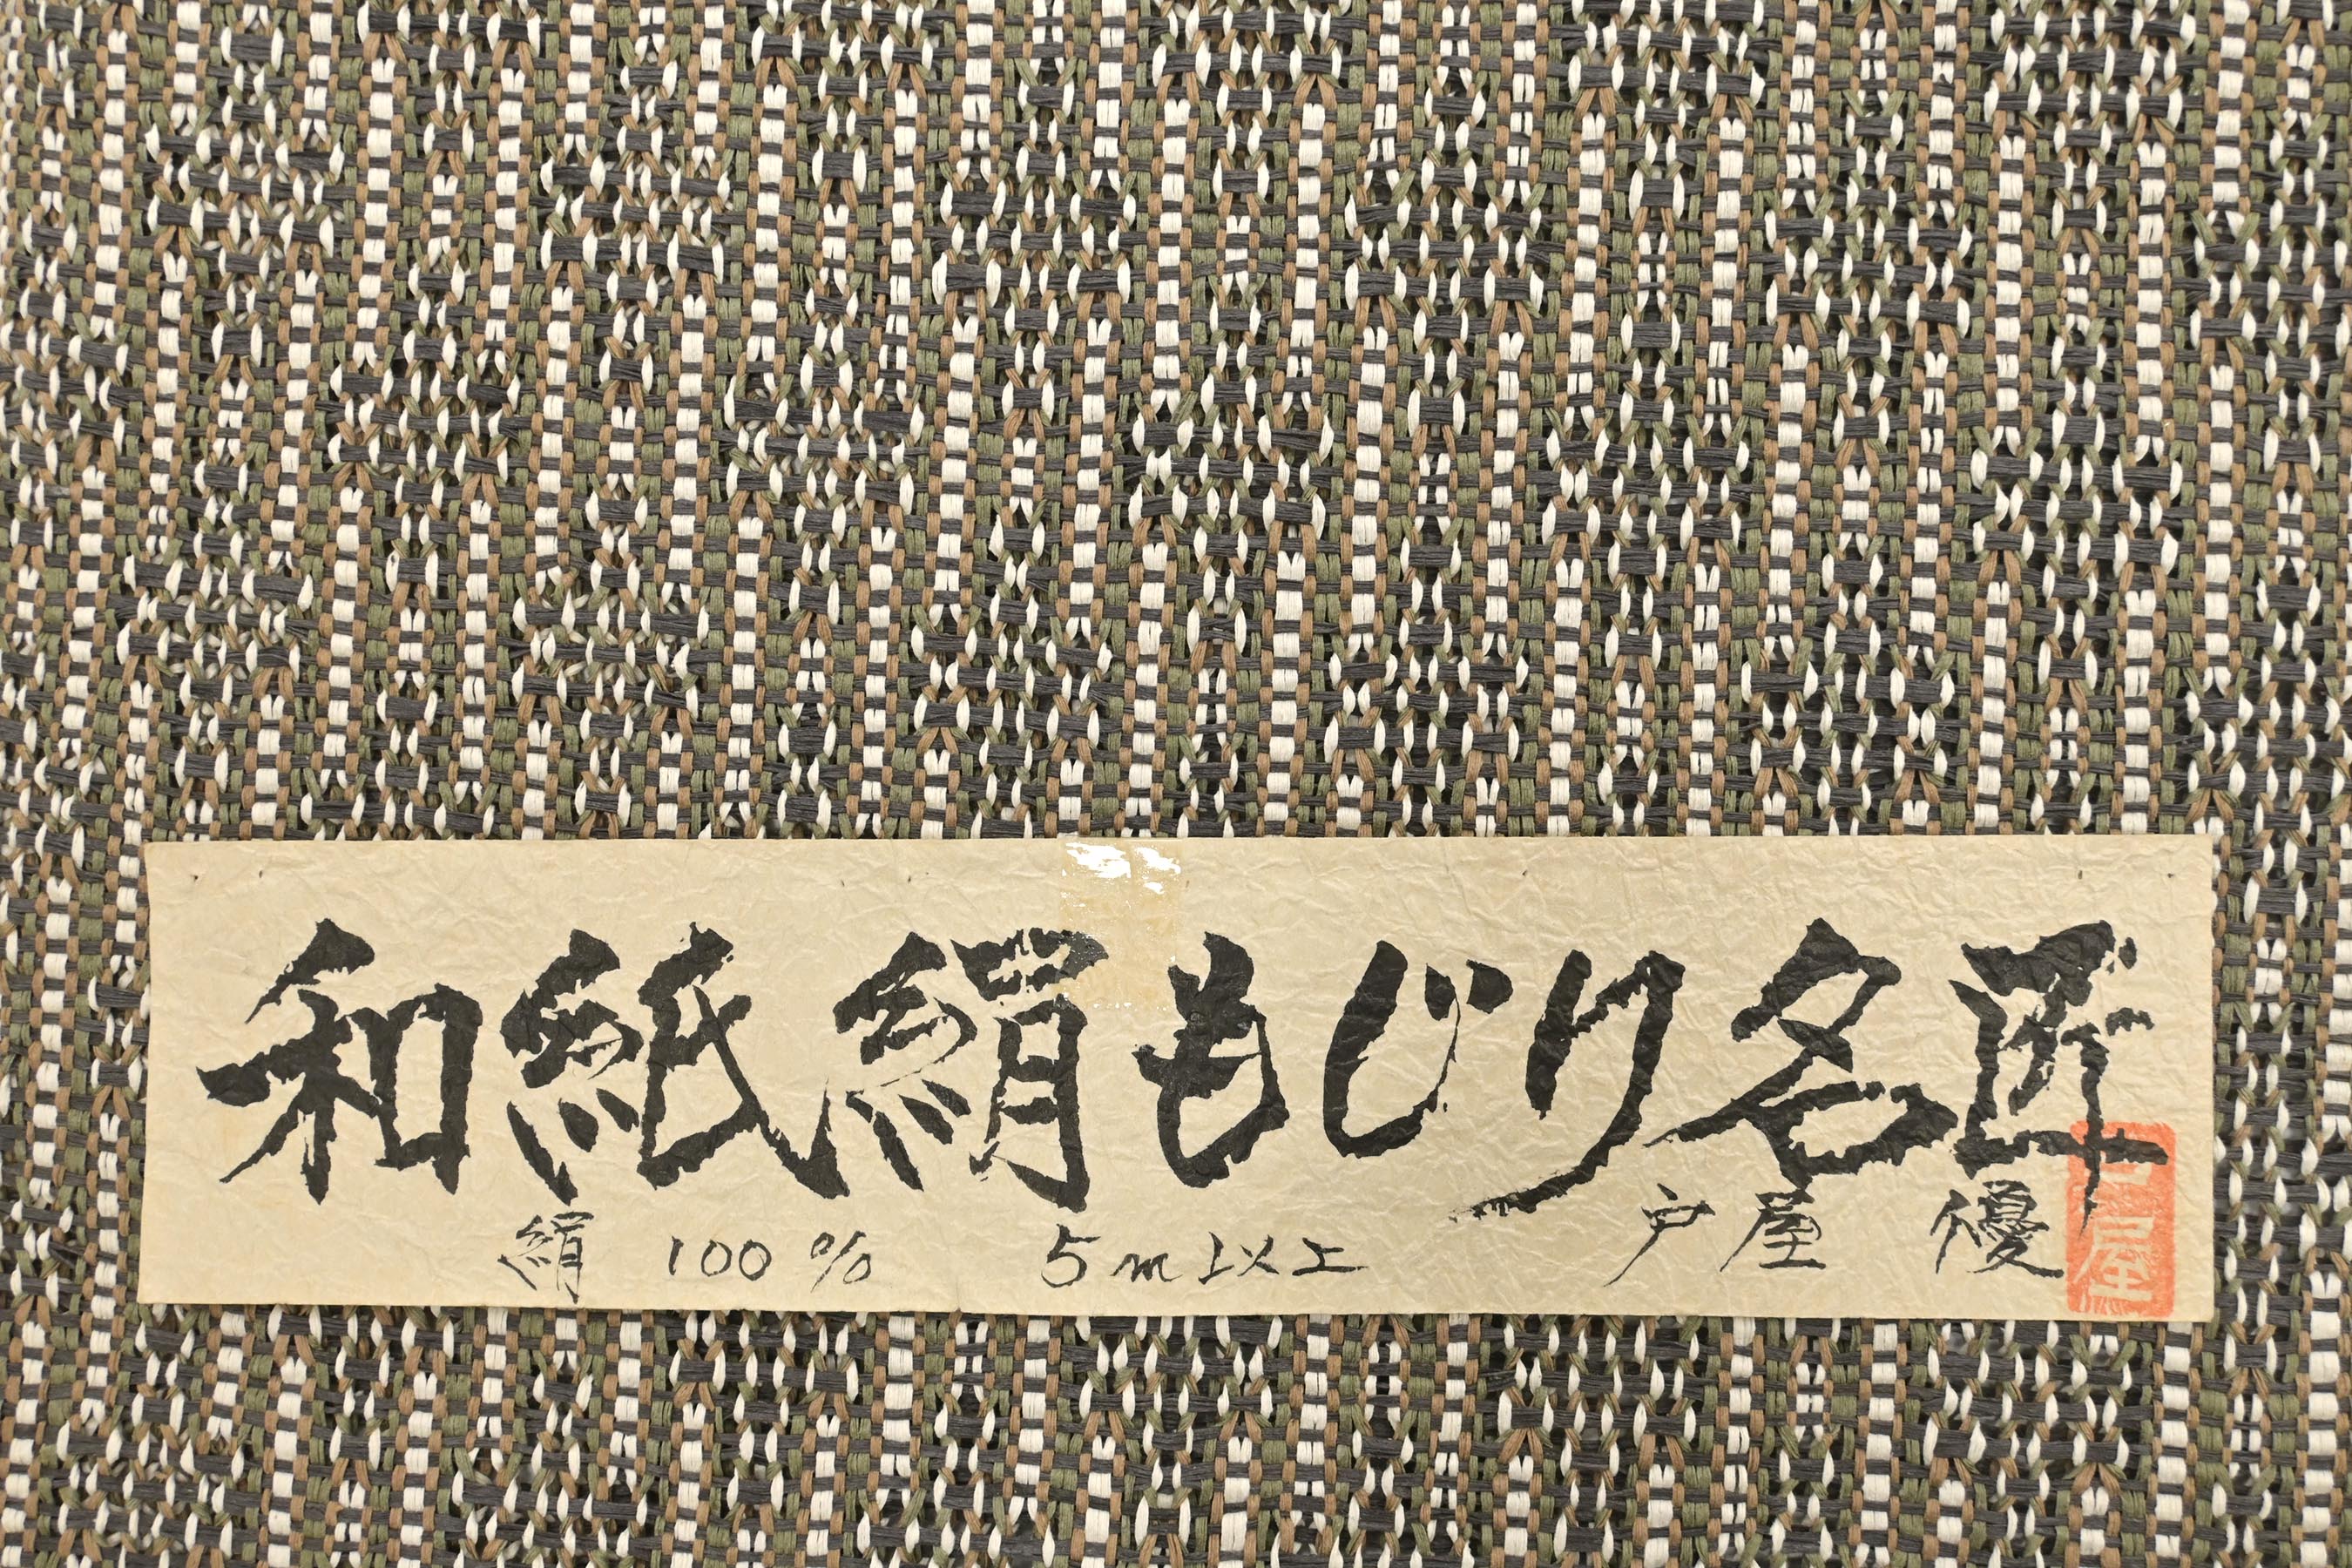 和紙絹もじり名匠
絹 100% 5m以上 戸屋 優
戸屋